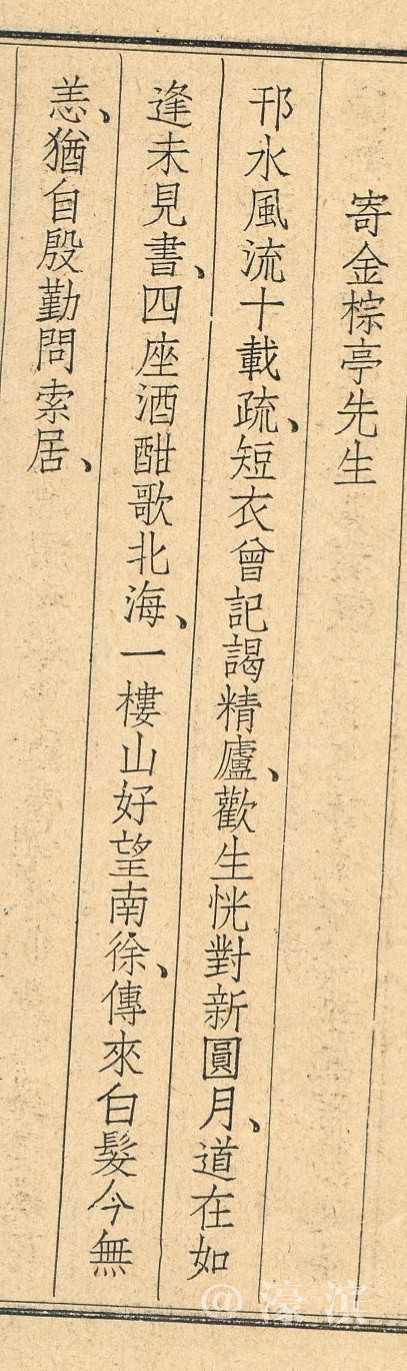 寄金棕亭先生
邗水風流十載疏、短衣曾記謁精廬、歡生恍對新圓月、道在如
逢未見書、四座酒酣歌北海、一樓山好望南徐、傳來白髮今無
恙、猶自殷勤問索居、
@濠滨